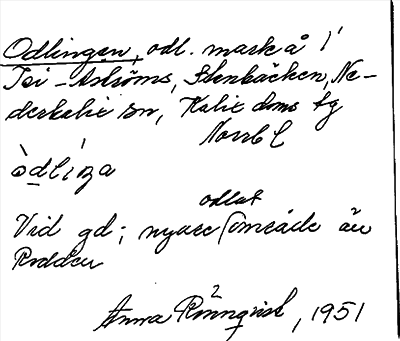 Odlingen, odl. mark å
Tei-Aströms, Stenbäcken, Ne-
derkalix sn, Kalix doms tg
Norrb l
òdlíŋa
Vid gd; nyare odlat område än
Rödden
Anna Rönnqvist, 1951